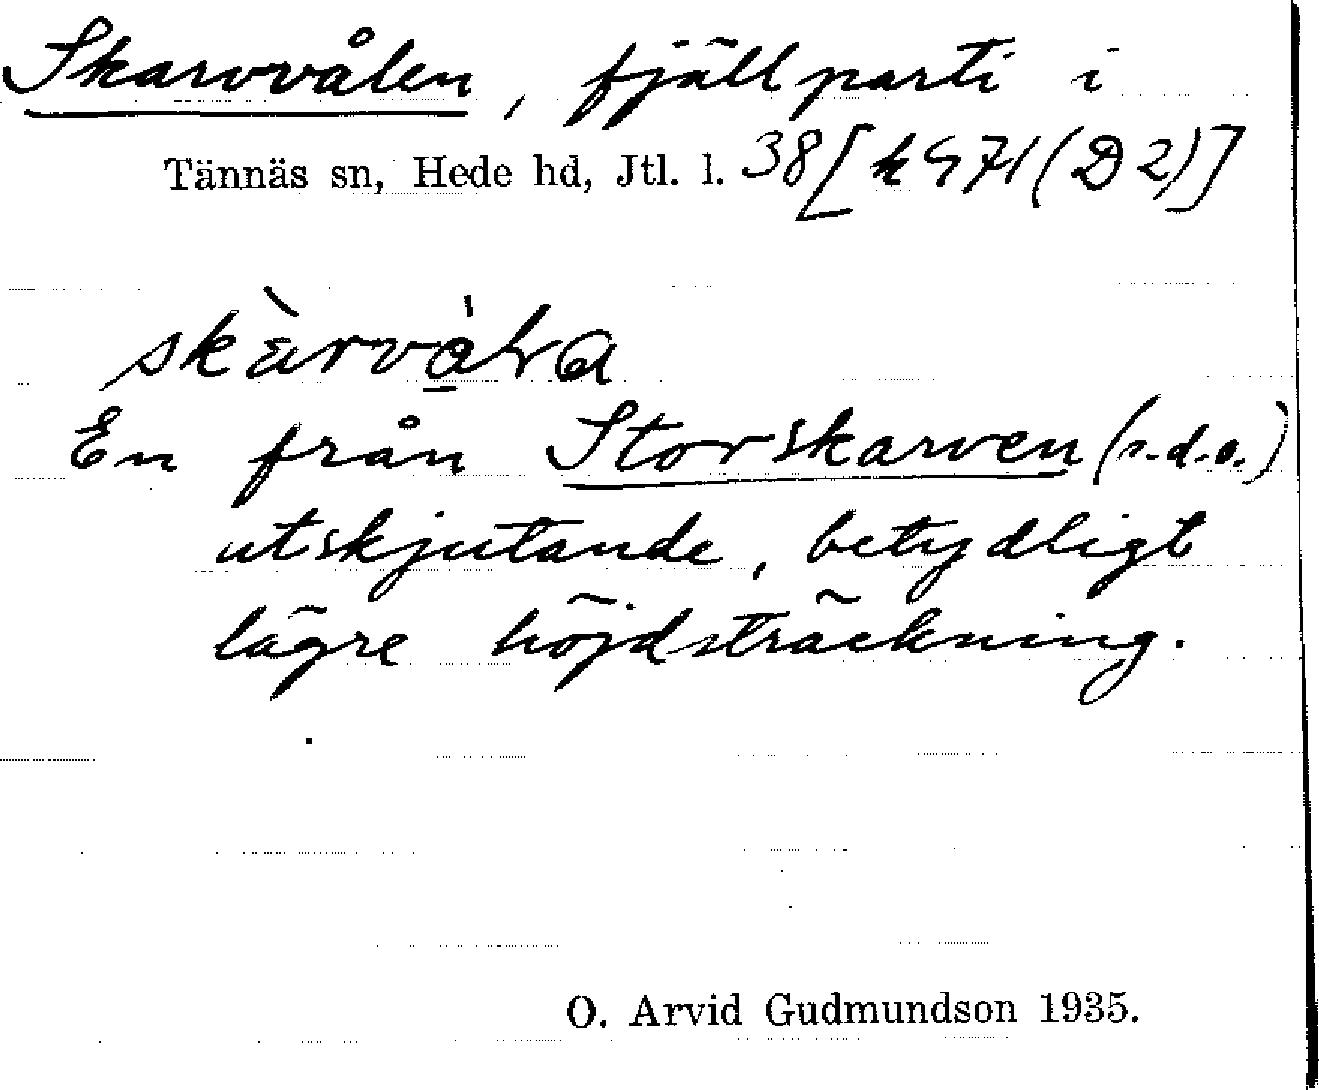 Skarvvålen, fjällparti i
Tännäs sn, Hede hd, Jtl. l. 38[k 971 (D 2)]
En från Storskarven (s.d.o.)
utskjutande, betydligt
lägre höjdsträckning.
O. Arvid Gudmundson 1935.